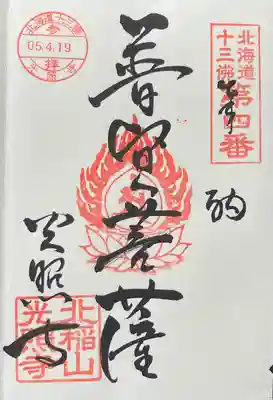 北海道
十三佛
第四番
納
普賢菩薩
光照寺
北稲山
光照寺
北海道十三佛
05.4.19